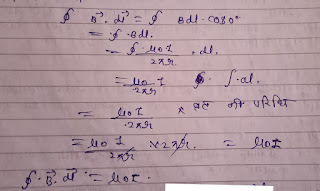 ∮ B⃗ . dl⃗ = ∮ Bdl. cos0°
= ∮. Bdl.
= ∮. μ₀I / 2πr . dl.
= μ₀I / 2πr ∮. ∫.dl.
= μ₀I / 2πr × वृत की परिधि
= μ₀I / 2πr × 2πr. = μ₀I
∮. B⃗. dl⃗ = μ₀I.